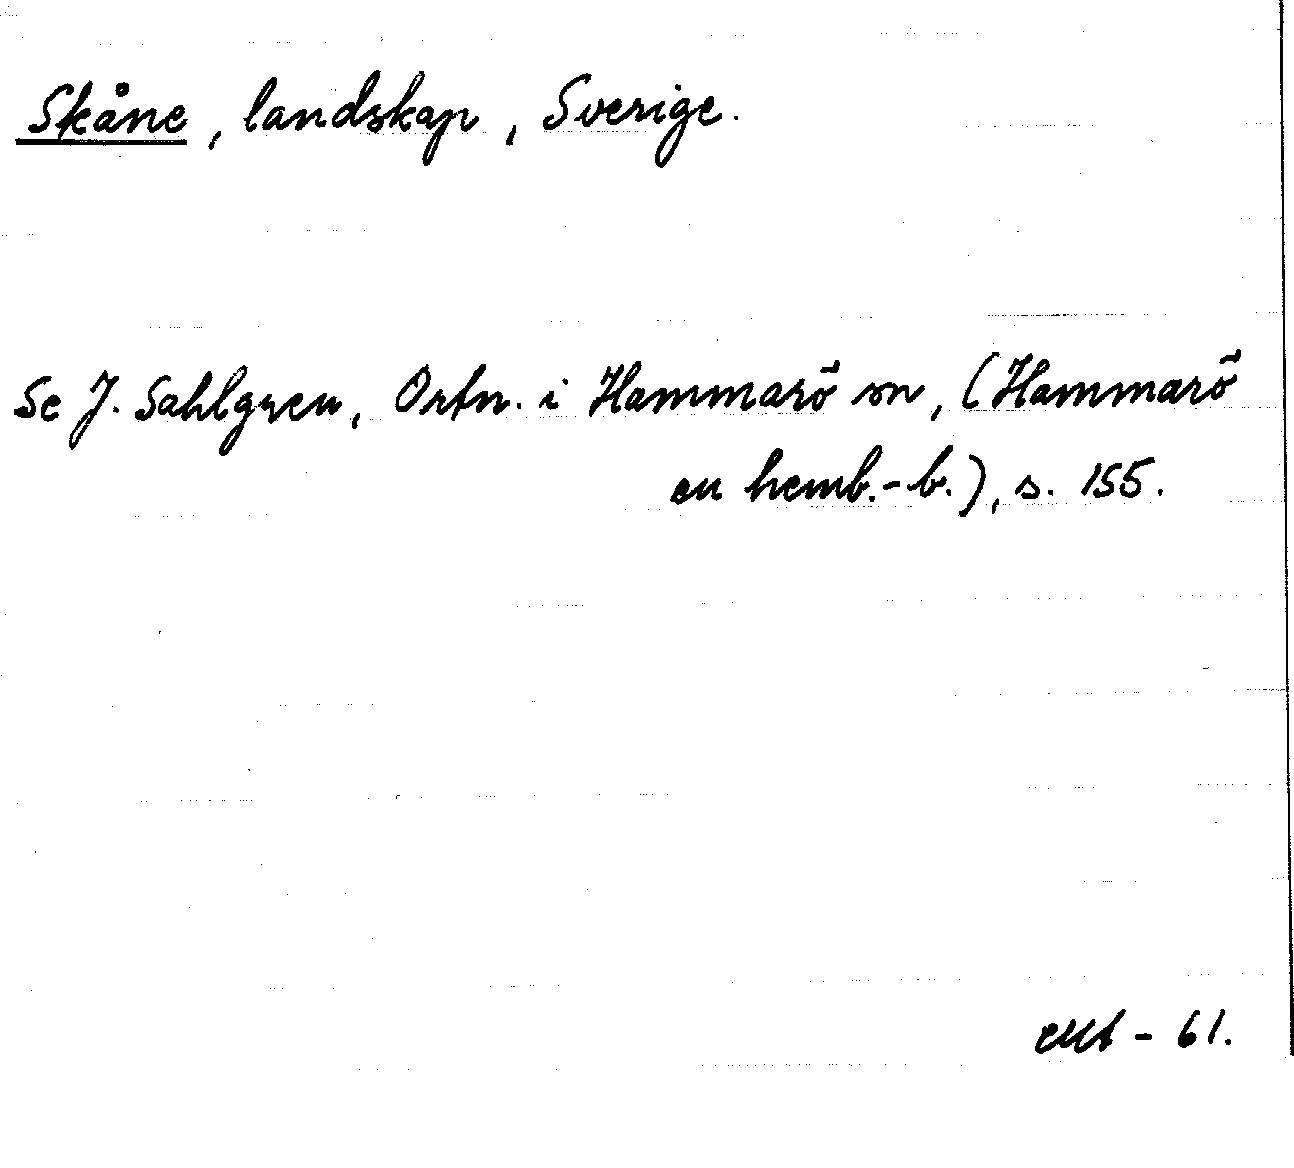 Skåne, landskap, Sverige.
Se J. Sahlgren, Ortn. i Hammarö sn, (Hammarö
en hemb.-b.), s. 155.
- 61.